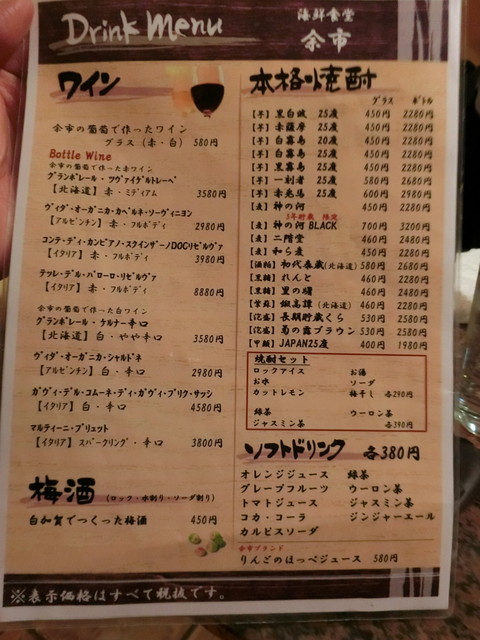 Drink Menu
海鮮食堂
余市
ワイン
余市の葡萄で作ったワイン
グラス(赤・白) 580円
Bottle Wine
余市の葡萄で作った赤ワイン
グランポレール・ツヴァイゲルトレーベ
【北海道】赤・ミディアム 3580円
ヴィダ・オーガニカ・カベルネ・ソーヴィニヨン
【アルゼンチン】赤・フルボディ 2980円
コンテ・ディ・カンピアノ・スクインザーノDOCリゼルヴァ
【イタリア】赤・フルボディ 3980円
テッレ・デル・バローロ・リゼルヴァ
【イタリア】赤・フルボディ 8880円
余市の葡萄で作った白ワイン
グランポレール・ケルナー辛口
【北海道】白・やや辛口 3580円
ヴィダ・オーガニカ・シャルドネ
【アルゼンチン】白・辛口 2980円
ガヴィ・デル・コムーネ・ディ・ガヴィ・ブリク・サッシ
【イタリア】白・辛口 4580円
マルティーニ・ブリュット
【イタリア】スパークリング・辛口 3800円
梅酒(ロック・水割り・ソーダ割り)
白加賀でつくった梅酒 450円
本格焼酎
グラス ボトル
【芋】黒白波 25度 450円 2280円
【芋】赤薩摩 25度 450円 2280円
【芋】白霧島 20度 450円 2280円
【芋】白霧島 25度 450円 2280円
【芋】黒霧島 25度 450円 2280円
【芋】一刻者 25度 580円 2680円
【芋】赤兎馬 25度 600円 2980円
【麦】神の河 450円 2280円
3年貯蔵 限定
【麦】神の河 BLACK 700円 3200円
【麦】二階堂 460円 2480円
【麦】和ら麦 450円 2280円
【酒粕】初代泰蔵(北海道) 580円 2680円
【黒糖】れんと 460円 2480円
【黒糖】里の曙 460円 2480円
【紫蘇】鍛高譚(北海道) 460円 2280円
【泡盛】長期貯蔵くら 530円 2580円
【泡盛】菊の露ブラウン 530円 2580円
【甲類】JAPAN25度 400円 1980円
焼酎セット
ロックアイス お湯
お水 ソーダ
カットレモン 梅干し 各290円
緑茶 ウーロン茶
ジャスミン茶 各390円
ソフトドリンク 各380円
オレンジジュース 緑茶
グレープフルーツ ウーロン茶
トマトジュース ジャスミン茶
コカ・コーラ ジンジャーエール
カルピスソーダ
余市ブランド
りんごのほっぺジュース 580円
※表示価格はすべて税抜です。